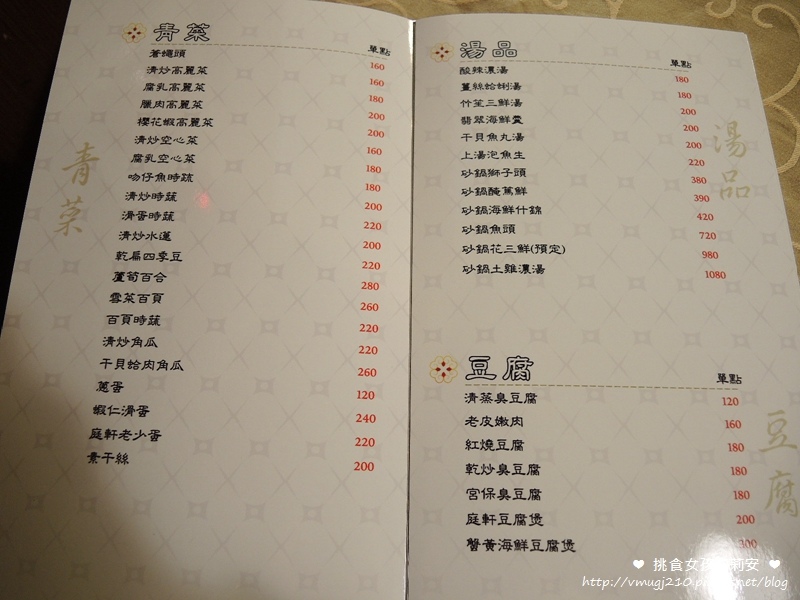 青菜
單點
蒼蠅頭 160
清炒高麗菜 160
腐乳高麗菜 180
臘肉高麗菜 200
櫻花蝦高麗菜 200
清炒空心菜 160
腐乳空心菜 180
吻仔魚時蔬 180
清炒時蔬 200
滑蛋時蔬 220
清炒水蓮 200
乾扁四季豆 220
蘆筍百合 280
雪菜百頁 260
百頁時蔬 220
清炒角瓜 220
干貝蛤肉角瓜 260
蔥蛋 120
蝦仁滑蛋 240
庭軒老少蛋 220
素干絲 200
青菜
湯品
單點
酸辣濃湯 180
薑絲蛤蜊湯 180
竹笙三鮮湯 200
翡翠海鮮羹 200
干貝魚丸湯 200
上湯泡魚生 220
砂鍋獅子頭 380
砂鍋醃篤鮮 390
砂鍋海鮮什錦 420
砂鍋魚頭 720
砂鍋花三鮮(預定) 980
砂鍋土雞濃湯 1080
湯品
豆腐
單點
清蒸臭豆腐 120
老皮嫩肉 160
紅燒豆腐 180
乾炒臭豆腐 180
宮保臭豆腐 180
庭軒豆腐煲 200
蟹黃海鮮豆腐煲 300
豆腐
❤ 挑食女孩 莉安 ❤
http://vmugj210.pixnet.net/blog